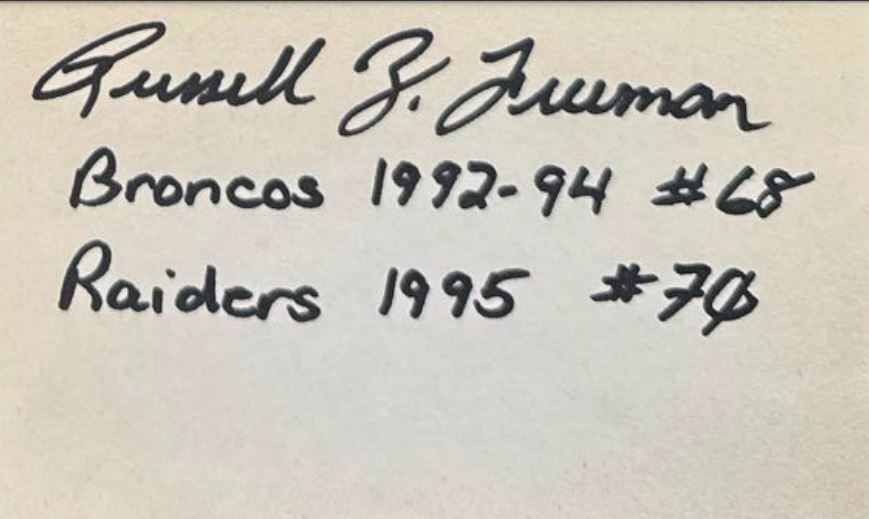 Russell Z. Freeman
Broncos 1992-94 #68
Raiders 1995 #70